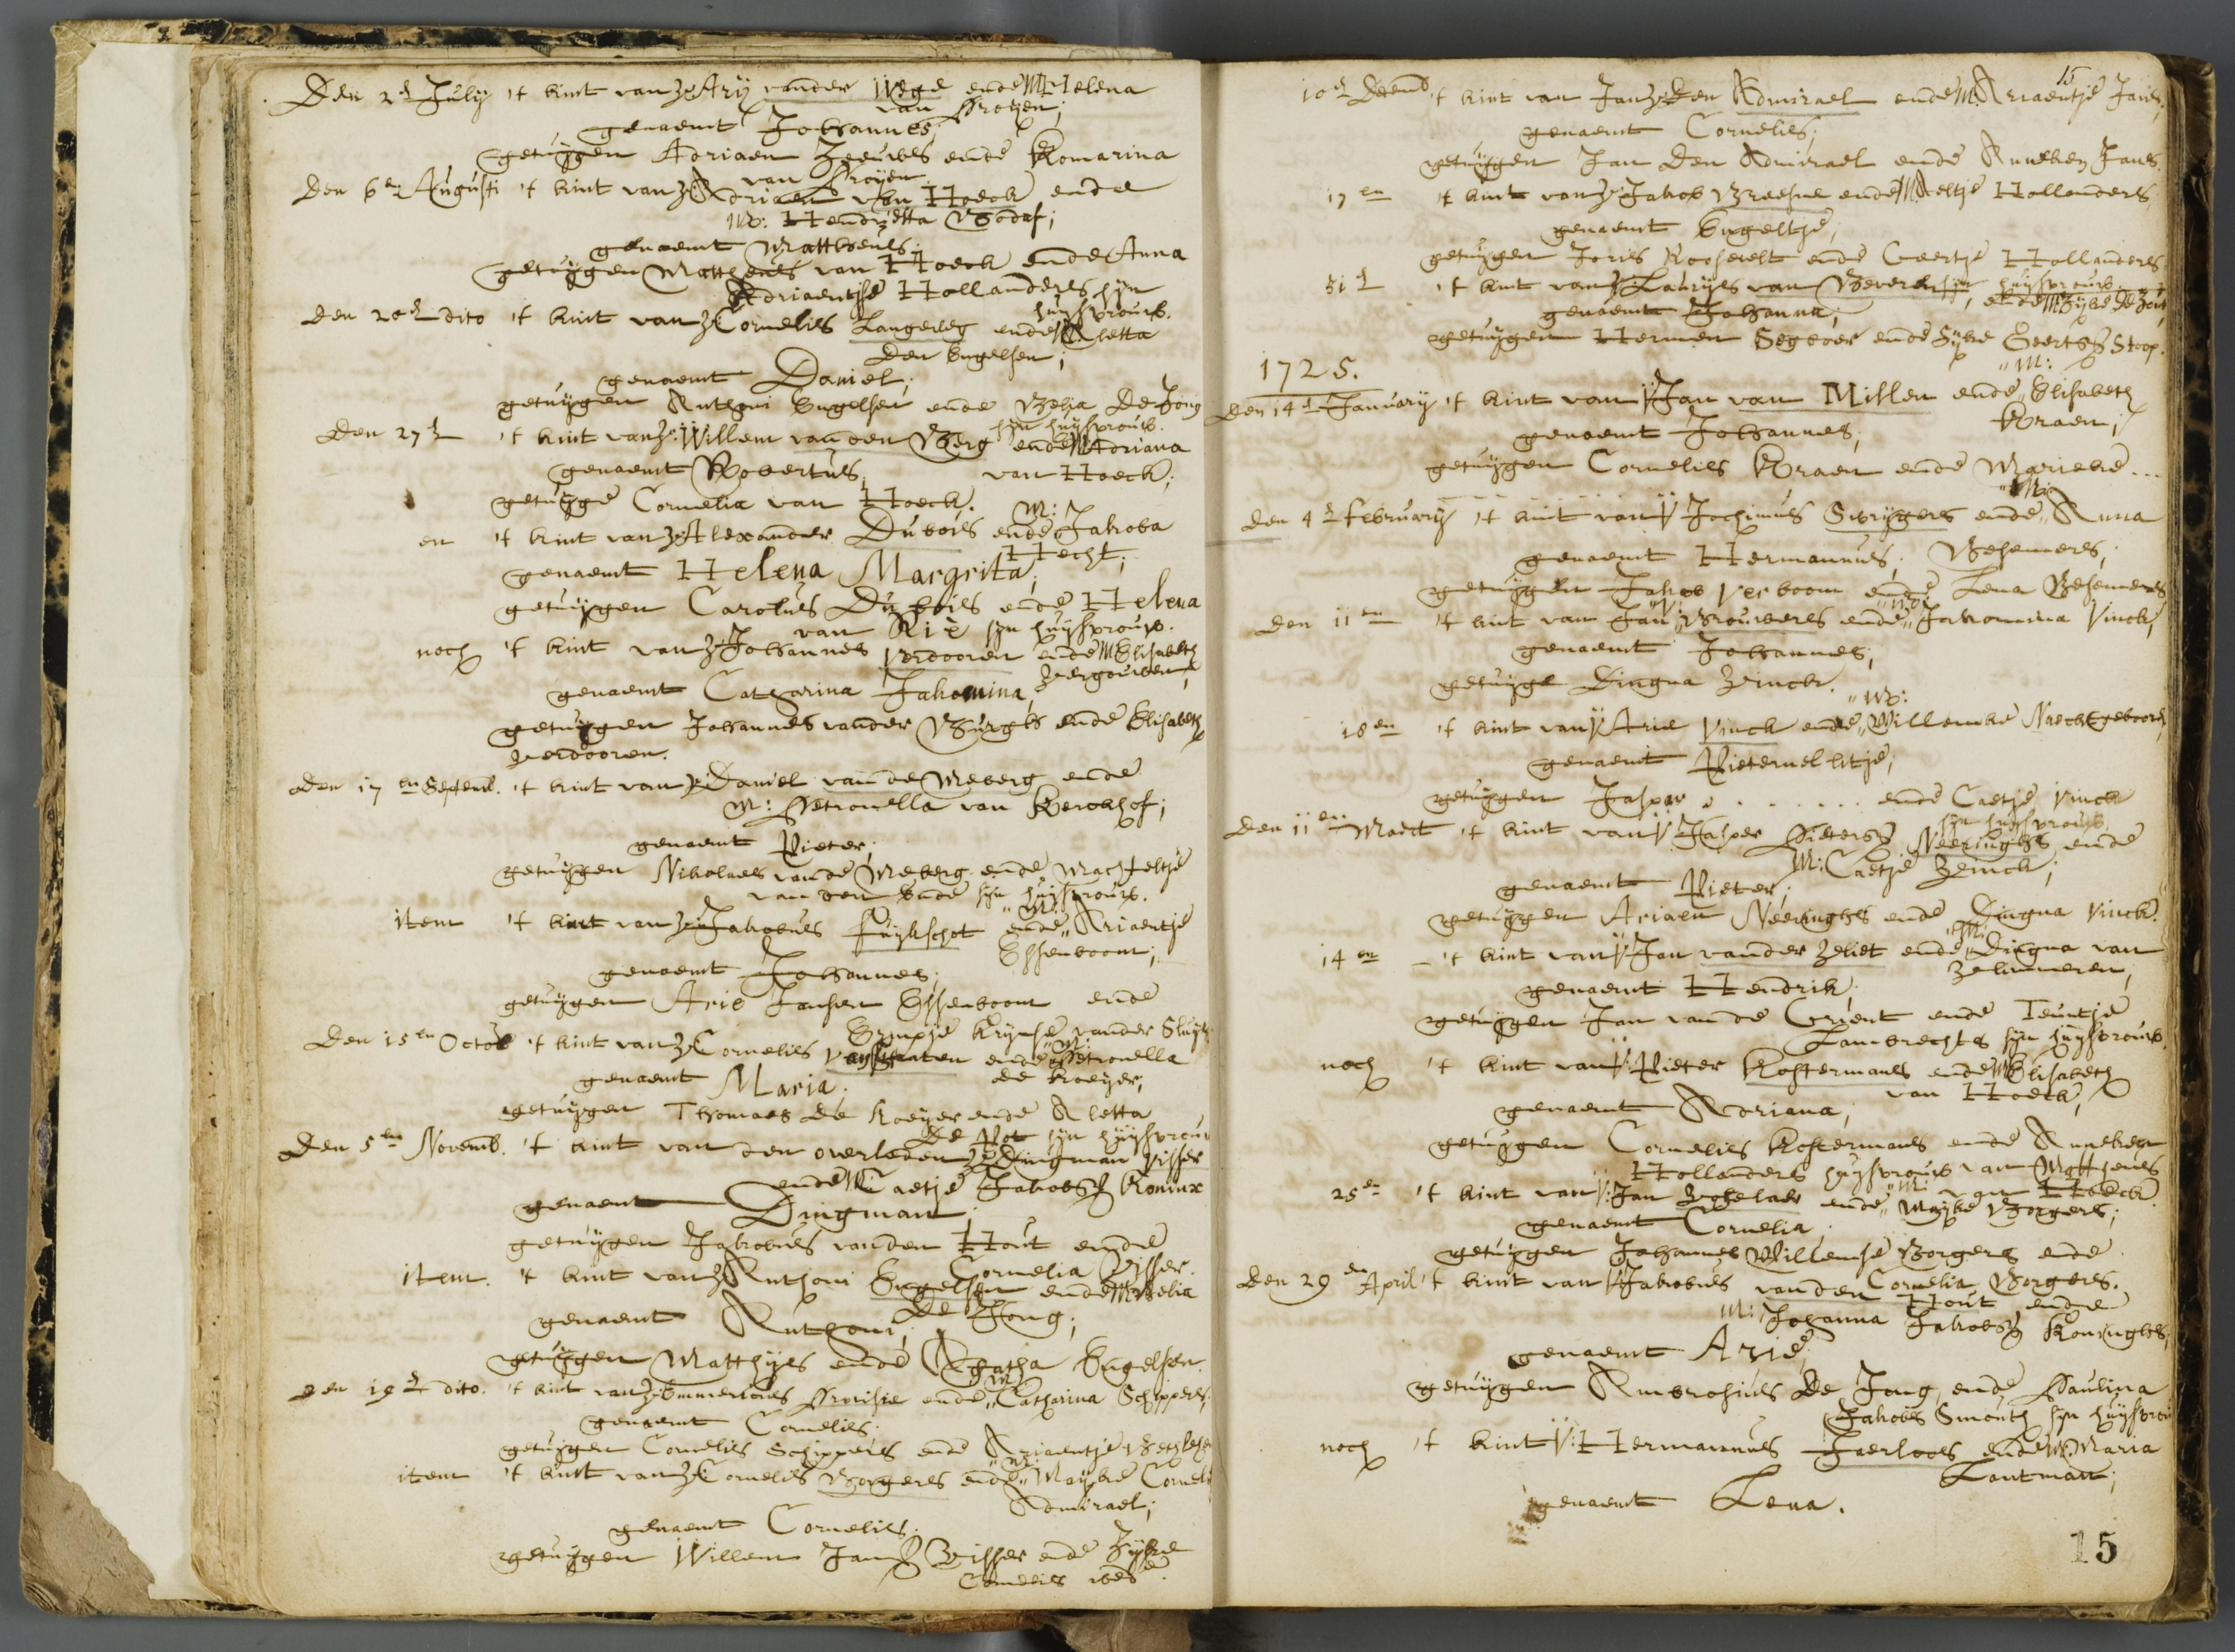 Den 2e July 't kint van V: Ary vander Wege ende M: Helena
van Proijen;
genaemt Johannes;
getuijgen Adriaen Zeeuwes ende Komarina
van Proijen.
Den 6en Augusti 't kint van V: Adriaen van Hoeck ende
M: Hendrietta Godaf;
genaemt Mattheus;
getuijgen Mattheus van Hoeck ende Anna
Adriaentse Hollanders sijn
huijsvrouw.
Den 20e dito 't kint van V: Cornelis Langeweg ende M: Aletta
Den Engelsen;
genaemt Daniel;
getuijgen Anthoni Engelsen ende Belia De Jong
sijn huijsvrouw.
Den 27e 't kint van V: Willem vanden Berg ende M: Adriana
van Hoeck;
genaemt Robertus;
getuijge Cornelia van Hoeck.
en 't kint van V: Alexander Dubois ende M: Jakoba
Hecht;
genaemt Helena Margrita;
getuijgen Carolus Du bois ende Helena
van Rie sijn huijsvrouw.
noch 't kint van V: Johannes Verdooren ende M: Elisabeth
Vergouwen;
genaemt Catharina Jakomina;
getuijgen Johannes vander Burgh ende Elisabeth
Verdooren.
den 17en Septemb. 't kint van V: Daniel van de Meberg ende
M: Petronella van Kerckhof;
genaemt Pieter;
getuijgen Nikolaes van de Meberg ende Machteltje
van den Ende sijn huijsvrouw.
item 't kint van V: Jakobus Fuijkschot ende M: Ariaentje
Essenboom;
genaemt Johannes;
getuijgen Arie Jansen Essenboom ende
Grupje Krijnse vander Sluijs
Den 15en Octob 't kint van V: Cornelis van Straaten ende M: Petronella
de Koeijer;
genaemt Maria.
getuijgen Thomaes de Koeijer ende Aletta
De Pot sijn huijsvrou
Den 5en Novemb. 't kint van den overleden V: Dingman Visser
ende M: Caetje Jakobs Koninx
genaemt Dingman.
getuijgen Jakobus vanden Hout ende
Cornelia Visser.
item. 't kint van V: Anthoni Engelsen ende M: Belia
De Jong;
genaemt Anthoni;
getuijgen Matthijs ende Agatha Engelsen.
den 19e dito. 't kint van V: Emmericus Provisie ende M: Catharina Schippers;
genaemt Cornelis;
getuijgen Cornelis Schippers ende Ariaentje
item 't kint van V: Cornelis Borgers ende M: Maijke Corneli
Admirael;
genaemt Cornelis;
getuijgen Willem Jans Visser ende Zijke
Cornelis
15
10e Decemb 't kint van Jan V: Den Admirael ende M: Ariaentje Jans;
genaemt Cornelis;
getuijgen Jan Den Admirael ende Anneken Jans.
17en 't kint van V: Jakob Breesne ende M: Neeltje Hollanders
genaemt Engeltje;
getuijgen Joris Roosevelt ende Geertje Hollanders
sijn huijsvrouw.
31e 't kint van V: Laurijs van Beveren ende M: Zijke De Zout
genaemt Johanna;
getuijgen Hermen Segboer ende Sijke Geerts Stoop.
1725.
Den 14e January 't kint van V: Jan van Millen ende M: Elisabeth
Kraen;
genaemt Johannes;
getuijgen Cornelis Kraen ende Marieke ...
den 4e february 't kint van V: Jochimus Swijgers ende M: Anna
Besemers;
genaemt Hermannus;
getuijgen Jakob Verboom ende Lena Besemers
Den 11en 't kint van Jan V: Brouwers ende M: Jakomina Vinck,
genaemt Johannes;
getuijge Dingna Vinck.
18en 't kint van V: Arie Vinck ende M: Willemke Naechtgeboore;
genaemt Pieternelletje;
getuijgen Jasper ....... ende Caetje Vinck
sijn huijsvrouw.
Den 11en Maert 't kint van V: Jasper Pieters Neeringhs ende
M: Caetje Vinck;
genaemt Pieter;
getuijgen Ariaen Neeringhs ende Dingna Vinck.
14en 't kint van V: Jan vander Zeliet ende M: Dingna van
genaemt Hendrik;
getuijgen Jan van de Grient ende Teuntje
Lambrechts sijn huijsvrouw.
noch 't kint van V: Pieter Kostermans ende M: Elisabeth
van Hoeck;
genaemt Adriana;
getuijgen Cornelis Kostermans ende Anneken
Hollanders huijsvrouw van Mattheus
van Hoeck
25en 't kint van V: Jan ende M: Maijke Borgers;
genaemt Cornelia.
getuijgen Johannes Willemse Borgers ende
Cornelia Borgers.
Den 29en April 't kint van V: Jakobus vanden Hout ende
M: Johanna Jakobs Koninghs;
genaemt Arie;
getuijgen Ambrosius De Jong ende Paulina
Jakobs Smouth sijn huijsvrou
noch 't kint V: Hermannus Jaerloos ende M: Maria
Lantman;
genaemt Lena.
15